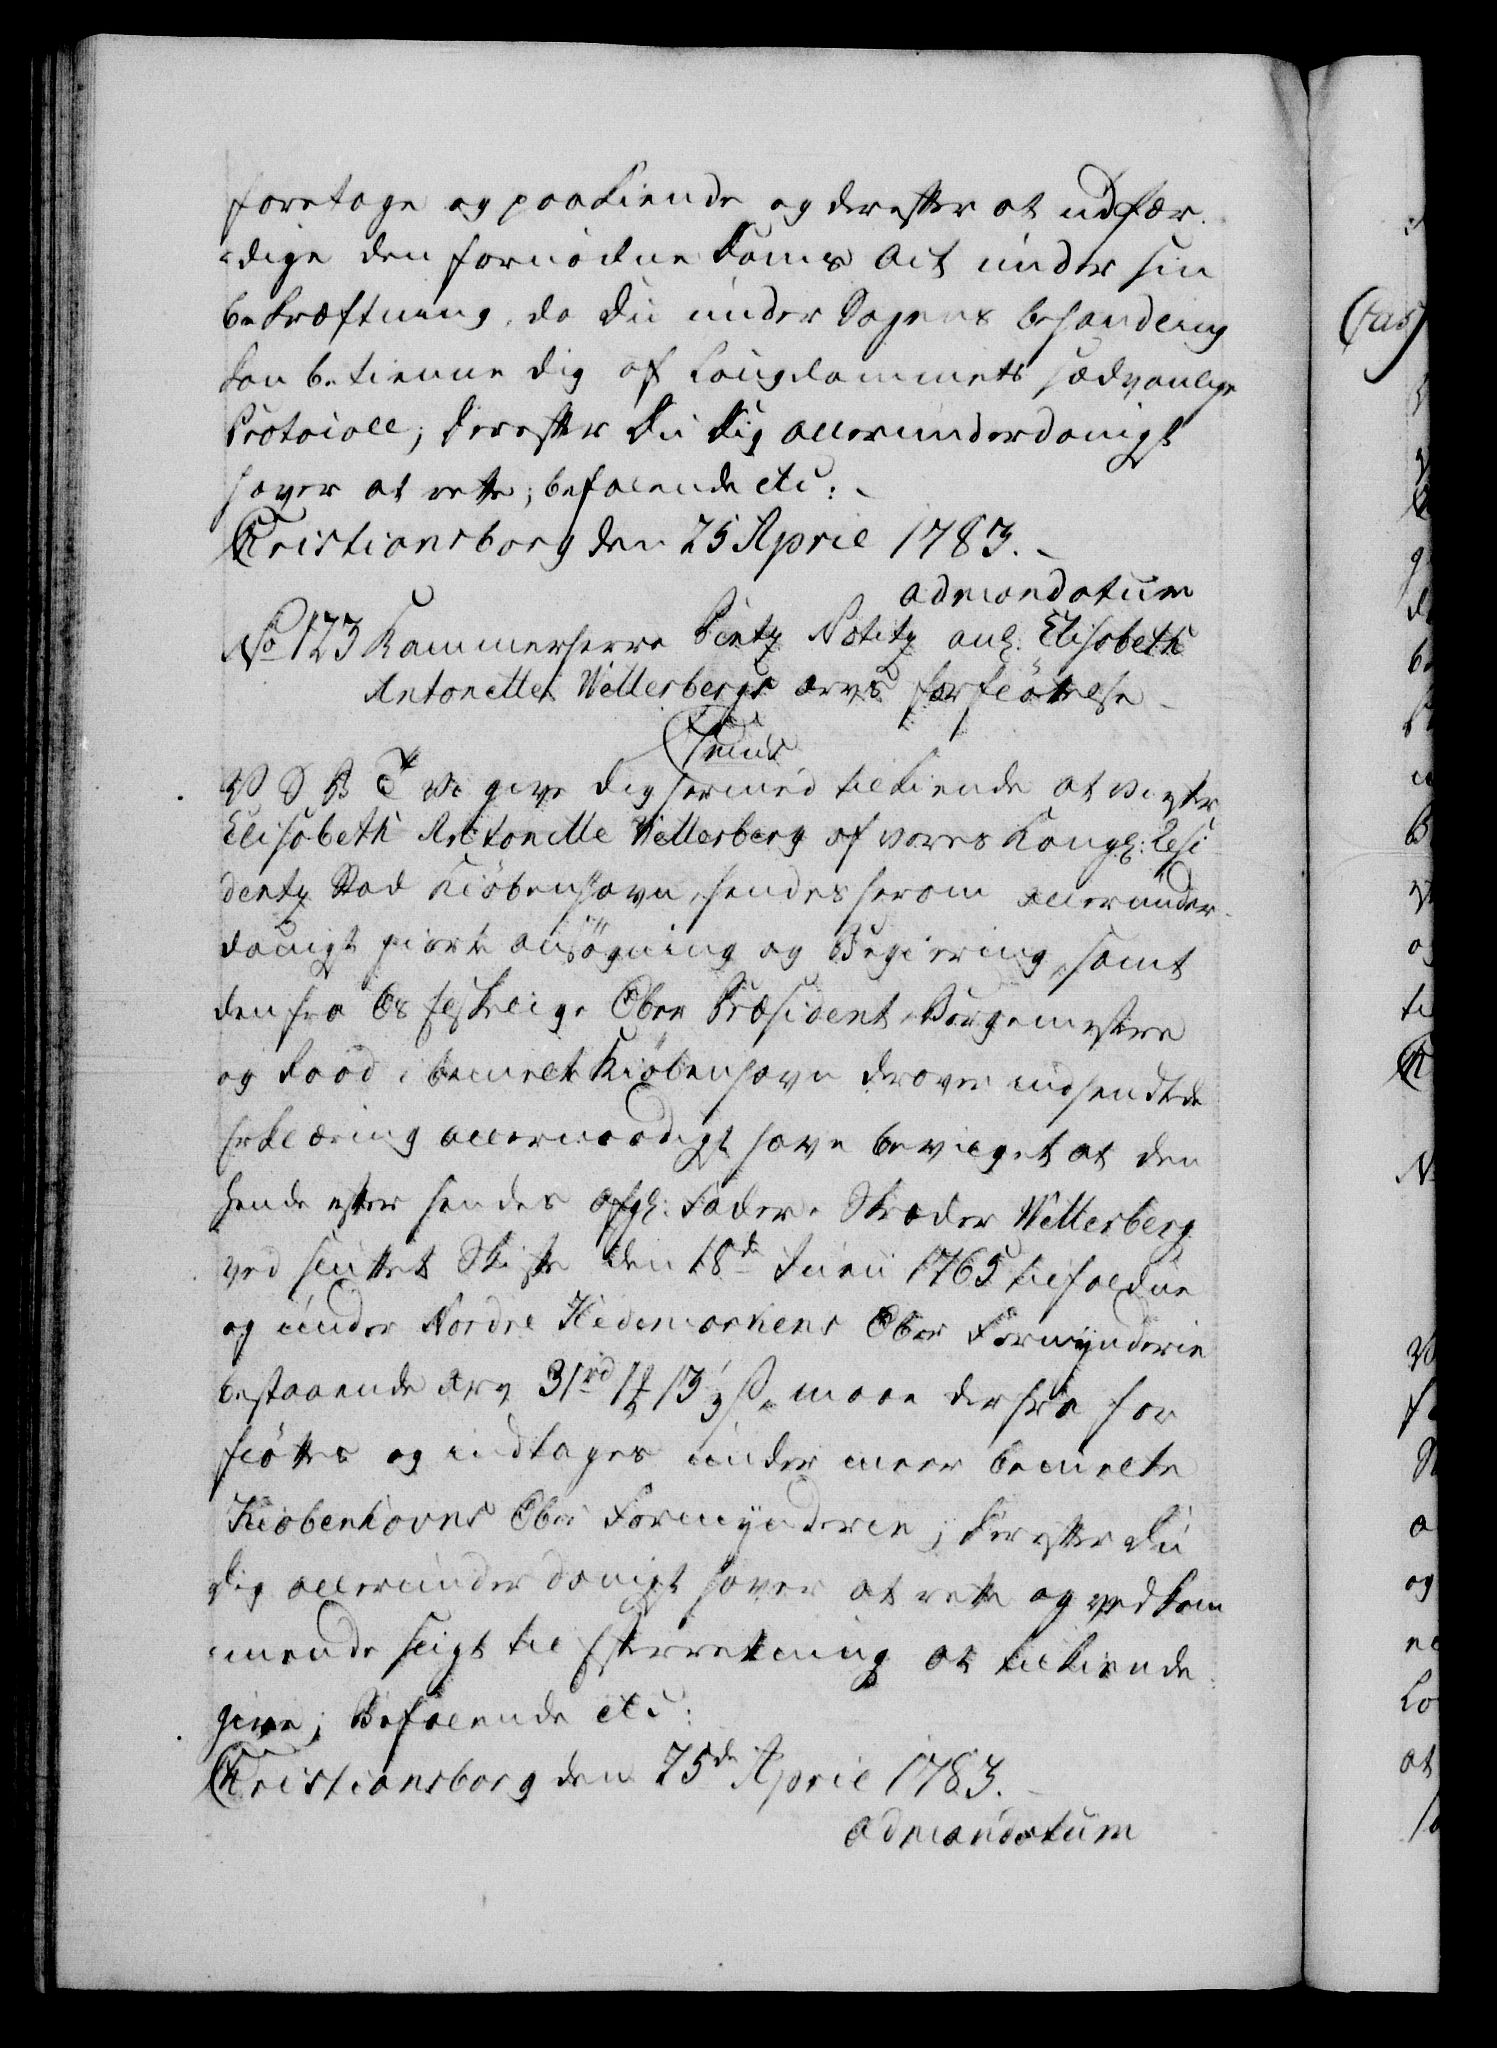 foretage og paakiende og derefter at udfær¬
-dige den fornødne Doms Act under sin
bekræftning, da Du under Sagens behandling
kan betienne dig af Laugdommets sædvanlige
Protocoll; derefter Du dig allerunderdanigst
haver at rette; befalende etc:
Christiansborg den 25 April 1783.
admandatum
No 123 Kammerherre Notitz anl: Elisabeth
Antonette Wetterbergs arvs forflÿttelse
V S B T Vi give dig hermed tilkiende at vi efter
Elisabeth Antonette Wetterberg af vores Kongl: Resi
dentz Stad Kiøbenhavn, hendes herom allerunder-
danigst giorte ansøgning og Begiering, samt
den fra Os elskelige Ober Præsident, Borgemestere
og Raad i bemelte Kiøbenhavn derover indsendte
Erklæring allernaadigst have bevilget at den
hende efter hendes afgl: Fader, Skræder Wetterberg
ved sluttet Skifte den 18de Junii 1765 tilfaldne
og under Nordre Hedemarkens Ober Formynderie
bestaaende Arv 31 rd 1 13 ½ s maae derfra for
fløttes og indtages under meer bemelte
Kiøbenhavns Ober Formynderie; derefter Du
dig allerunderdanigst haver at rette og vedkom
-mende sligt til Efterretning at tilkiende
give; Befalende etc:
Christiansborg den 25de April 1783.
admandatum